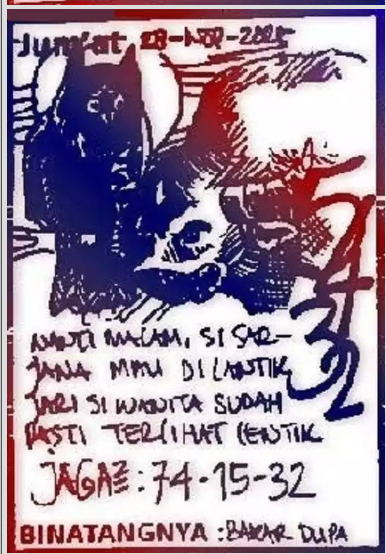 Jum'at 28-NOP-2025
7
4
3
2
NANTI MALAM, SI SAR-
JANA MAU DILANTIK
JARI SI WANITA SUDAH
PASTI TERLIHAT LENTIK
JAGA²: 74-15-32
BINATANGNYA : BAKAR DUPA